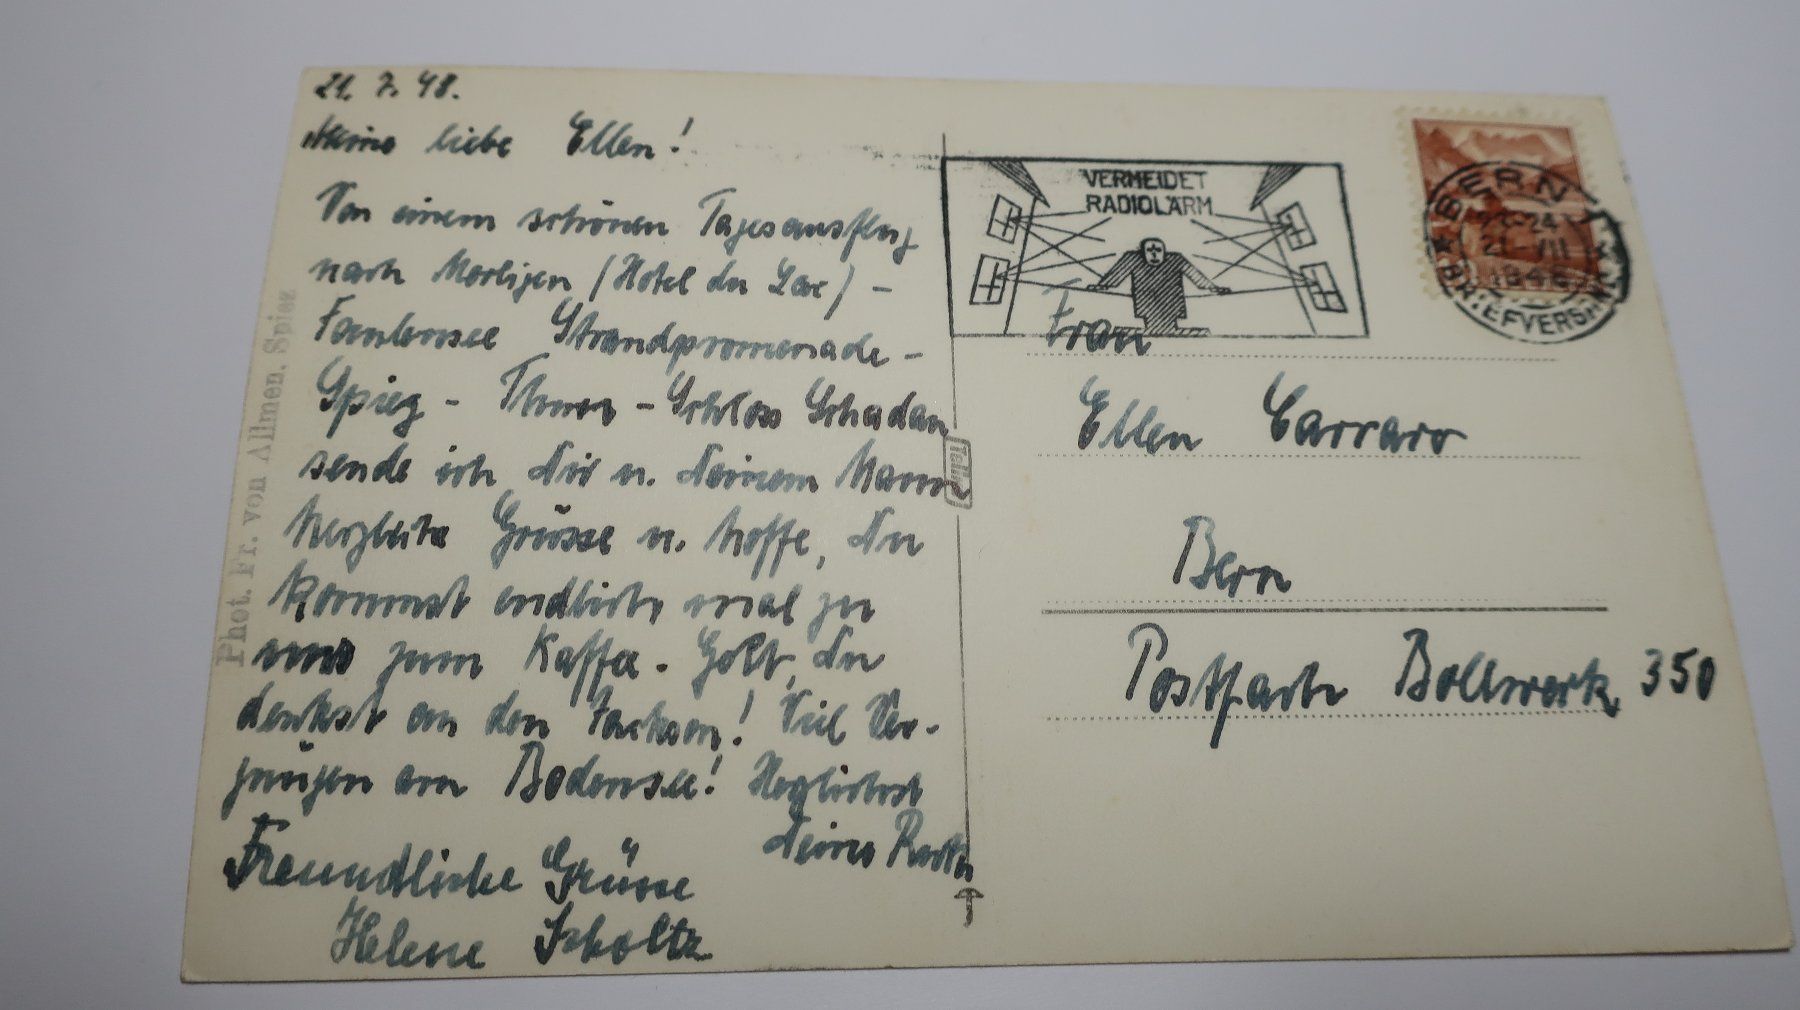 21. 7. 48.
Meine liebe Ellen!
Von einem schönen Tagesausflug
nach Merligen (Hotel du Lac) –
Faulensee Strandpromenade –
Spiez – Thun – Schloss Schadau
sende ich Dir u. Deinem Mann
herzliche Grüsse u. hoffe, Du
kommst endlich mal zu
uns zum Kaffee. Gelt, Du
denkst an den! Viel Ver-
gnügen am Bodensee! Herzlichst
Deine Ruth
Freundliche Grüsse
Helene Scholtz
Phot. Fr. von Allmen, Spiez
VERMEIDET
RADIOLÄRM
BERN 1
24
21 VII
1948
BRIEFVERSAND
Frau
Ellen Carraro
Bern
Postfach Bollwerk 350